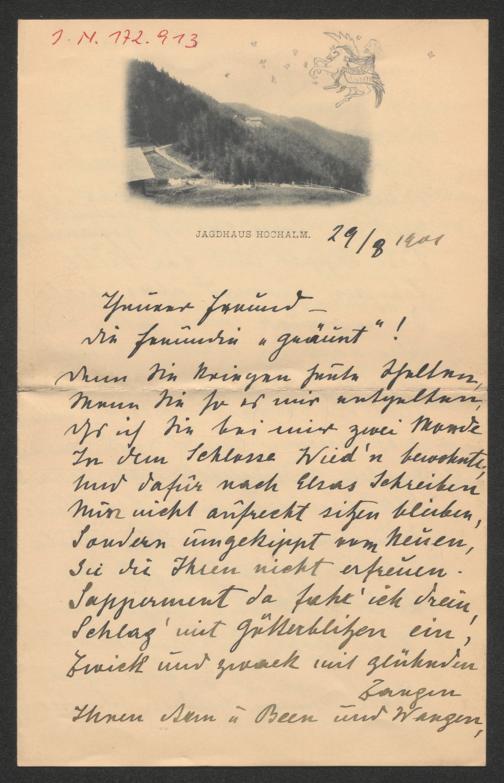 I. N. 172.913
JAGDHAUS HOCHALM.
29/8 1901
Theurer Freund –
die Freundin „ "!
Denn Sie kriegen heute Schelten,
Wenn Sie so es mir entgelten,
ich Sie bei mir zwei Monde
In dem Schlosse Wied'n bewohnte,
Und dafür nach Elsas Schreiben
Nur nicht aufrecht sitzen bleiben,
Sondern umgekippt vom Neuen,
Sie die Ihren nicht erfreuen.
Sapperment da fahr' ich drein,
Schlag' mit Götterblitzen ein,
Zwick und zwack mit glühnden
Zangen
Ihnen Arm u Been und Wangen,